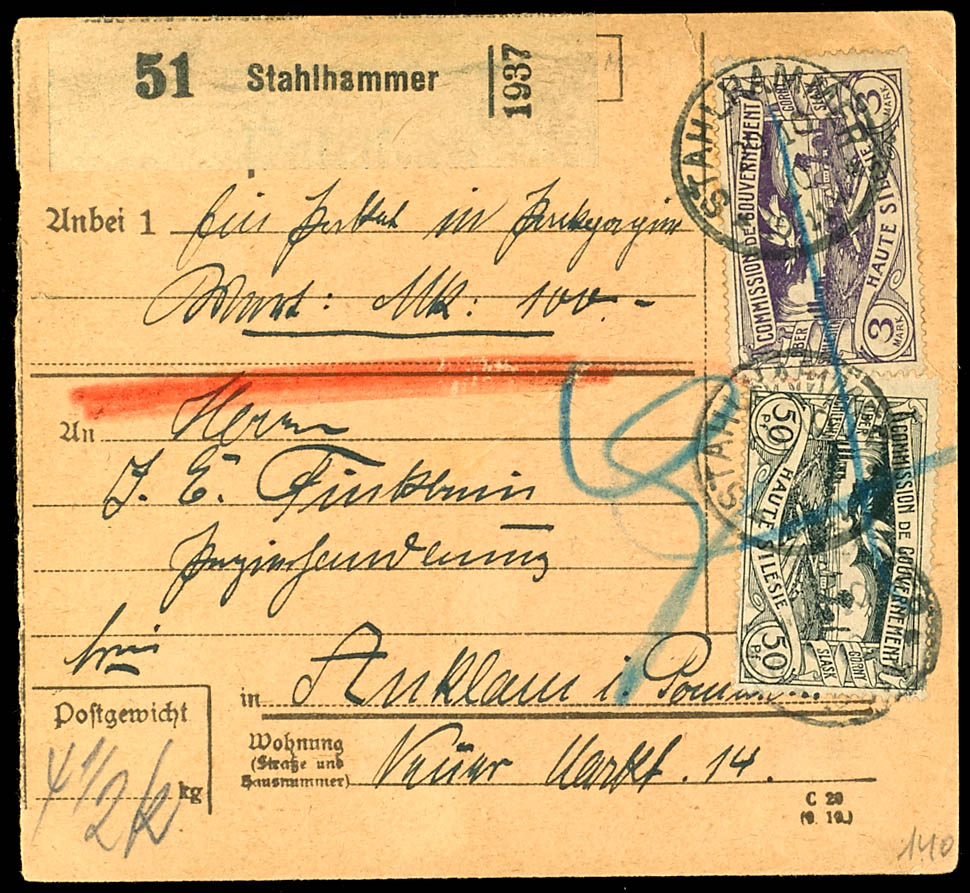 51 Stahlhammer 1937
Anbei 1 Ein Paket in
Wert: Mk: 100.-
An Herrn
J. E. Finkbein
frei
in Anklam i. Pommern
Postgewicht
4 1/2 k kg
Wohnung
(Straße und
Hausnummer)
Neuer Markt. 14.
C 29
(9. 19.)
140
STAHLHAMMER
COMMISSION DE GOUVERNEMENT
HAUTE SILESIE
3 MARK
3 MARK
STAHLHAMMER
COMMISSION DE GOUVERNEMENT
HAUTE SILESIE
GORNY
SLASK
50 Pf
50 Pf